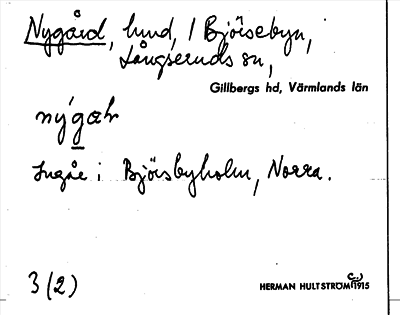 Nygård, hmd, 1 Björsebyn,
Långseruds sn,
Gillbergs hd, Värmlands län
ny´gaɶr
Ingår i Björsbyholm, Norra.
3 (2)
HERMAN HULTSTRÖM (c.) 1915